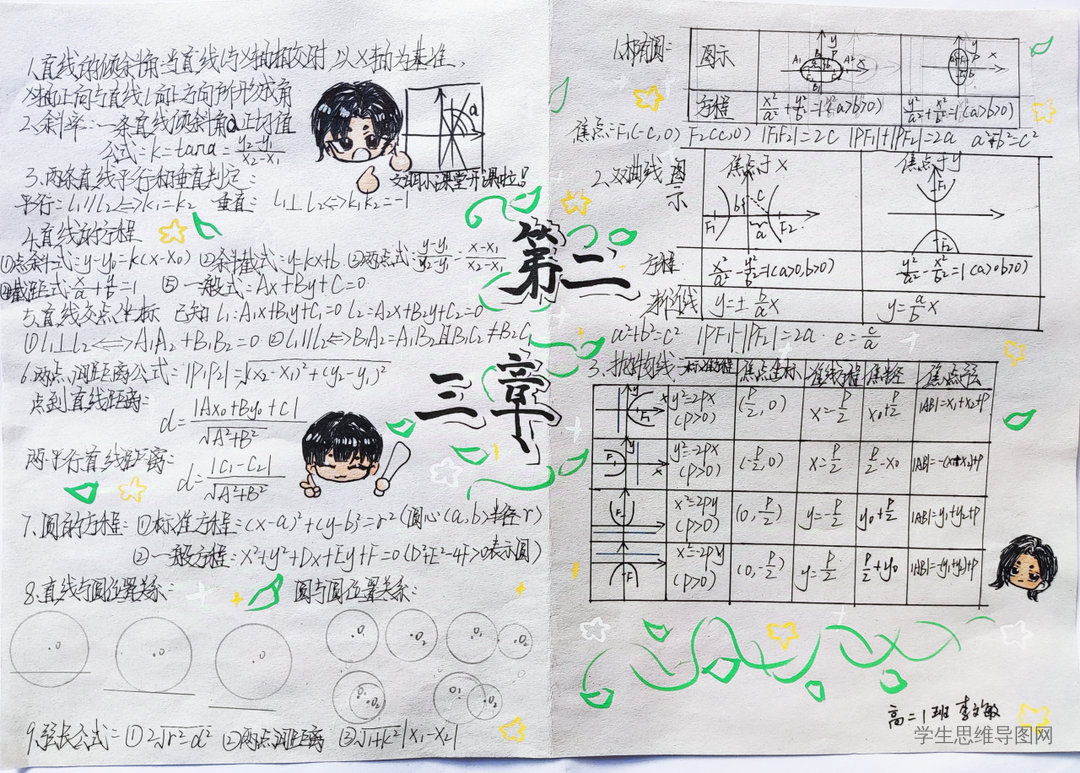 1.直线的倾斜角:当直线l与x轴相交时,以x轴为基准,
x轴正向与直线l向上方向所形成角
2.斜率:一条直线倾斜角α正切值
公式:k=tanα=\frac{y₂-y₁}{x₂-x₁}
3.两条直线平行和垂直判定:
平行:l₁∥l₂⟺k₁=k₂ 垂直: l₁⊥l₂⟺k₁k₂=-1
4.直线的方程
①点斜式:y-y₀=k(x-x₀) ②斜截式:y=kx+b ③两点式:\frac{y-y₁}{y₂-y₁}=\frac{x-x₁}{x₂-x₁}
④截距式:\frac{x}{a}+\frac{y}{b}=1 ⑤一般式:Ax+By+C=0
5.直线交点坐标 已知 L₁:A₁x+B₁y+C₁=0 L₂=A₂x+B₂y+C₂=0
①L₁⊥L₂⟺A₁A₂+B₁B₂=0 ②L₁∥L₂⟺BA₂=A₁B₂且B₁C₂≠B₂C₁
6.两点间距离公式=|P₁P₂|=√(x₂-x₁)²+(y₂-y₁)²
点到直线距离:
d=\frac{|Ax₀+By₀+C|}{√A²+B²}
两平行直线距离:
d=\frac{|C₁-C₂|}{√A²+B²}
7.圆的方程:①标准方程=(x-a)²+(y-b)²=r²(圆心(a,b)半径r)
②一般方程=x²+y²+Dx+Ey+F=0(D²+E²-4F>0表示圆)
8.直线与圆位置关系: 圆与圆位置关系:
O O O O₁ O₂ O₁ O₂
O₁ O₂ O₁ O₂
9.弦长公式=①2√r²-d² ②两点间距离 ③√1+k²|x₁-x₂|
α
小课堂开课啦!
第二
三章
1.椭圆: 图示
方程 \frac{x²}{a²}+\frac{y²}{b²}=1(a>b>0) \frac{y²}{a²}+\frac{x²}{b²}=1(a>b>0)
焦点:F₁(-c,0) F₂(c,0) |F₁F₂|=2c |PF₁|+|PF₂|=2a a²+b²=c²
2.双曲线 图示 焦点于x 焦点于y
b c a F₁ F₂ F₁ F₂
方程 \frac{x²}{a²}-\frac{y²}{b²}=1(a>0,b>0) \frac{y²}{a²}-\frac{x²}{b²}=1(a>b>0)
渐近线 y=±\frac{b}{a}x y=\frac{a}{b}x
a²+b²=c² |PF₁|-|PF₂|=2a e=\frac{c}{a}
3.抛物线 标准方程 焦点坐标 准线方程 焦半径 焦点径
y²=2px (p>0) (\frac{p}{2},0) x=-\frac{p}{2} x₀+\frac{p}{2} |AB|=x₁+x₂+p
y²=-2px (p>0) (-\frac{p}{2},0) x=\frac{p}{2} \frac{p}{2}-x₀ |AB|=-(x₁+x₂)+p
x²=2py (p>0) (0,\frac{p}{2}) y=-\frac{p}{2} y₀+\frac{p}{2} |AB|=y₁+y₂+p
x²=-2py (p>0) (0,-\frac{p}{2}) y=\frac{p}{2} \frac{p}{2}+y₀ |AB|=-(y₁+y₂)+p
高二1班 李文敏
学生思维导图网